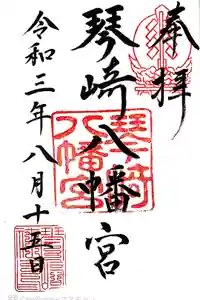 奉拝
琴崎八幡宮
琴崎八幡宮
令和三年八月十五日